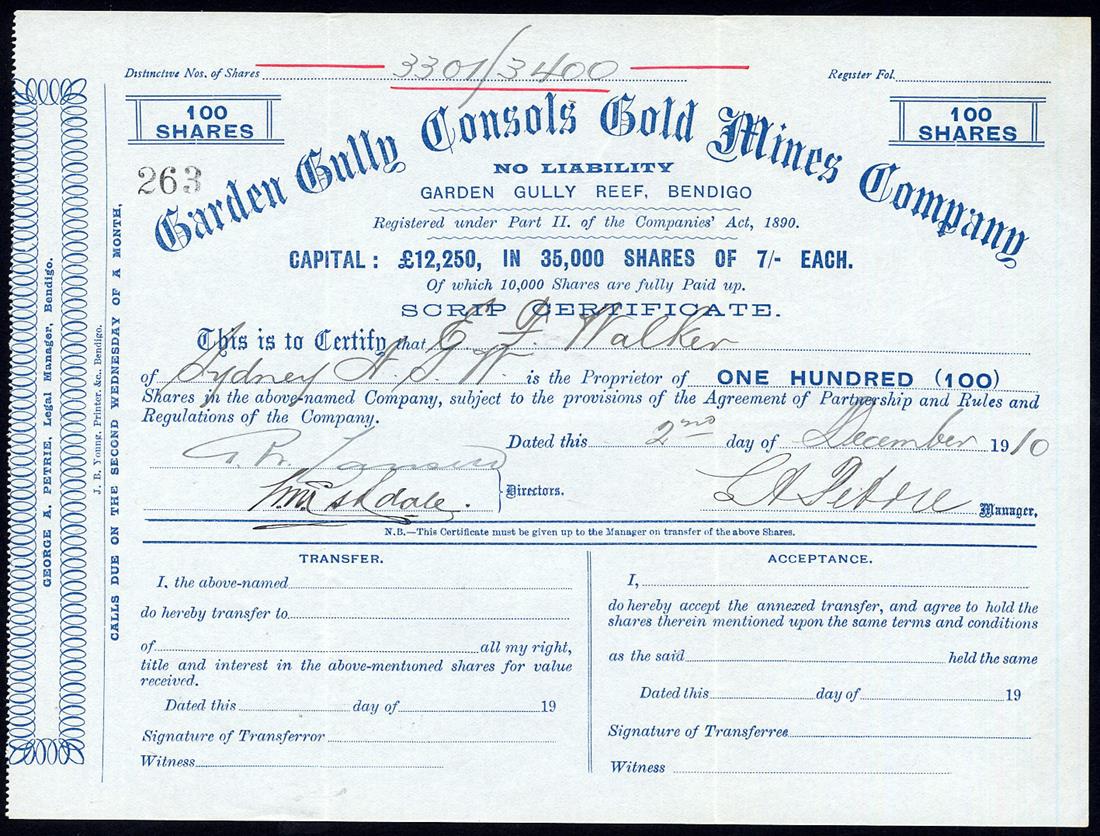 Distinctive Nos. of Shares 3301/3400 Register Fol.
100 SHARES
100 SHARES
263
Garden Gully Consols Gold Mines Company
NO LIABILITY
GARDEN GULLY REEF, BENDIGO
Registered under Part II. of the Companies' Act, 1890.
CAPITAL: £12,250, IN 35,000 SHARES OF 7/- EACH.
Of which 10,000 Shares are fully Paid up.
SCRIP CERTIFICATE.
This is to Certify that E. F. Walker
of Sydney N. S. W is the Proprietor of ONE HUNDRED (100)
Shares in the above-named Company, subject to the provisions of the Agreement of Partnership and Rules and
Regulations of the Company.
Dated this 2nd day of December 1910
Directors.
Petrie Manager.
N.B.—This Certificate must be given up to the Manager on transfer of the above Shares.
TRANSFER.
I, the above-named
do hereby transfer to
of all my right,
title and interest in the above-mentioned shares for value
received.
Dated this day of 19
Signature of Transferror
Witness
ACCEPTANCE.
I,
do hereby accept the annexed transfer, and agree to hold the
shares therein mentioned upon the same terms and conditions
as the said held the same
Dated this day of 19
Signature of Transferree
Witness
GEORGE A. PETRIE, Legal Manager, Bendigo.
J. B. Young, Printer, &c., Bendigo.
CALLS DUE ON THE SECOND WEDNESDAY OF A MONTH,